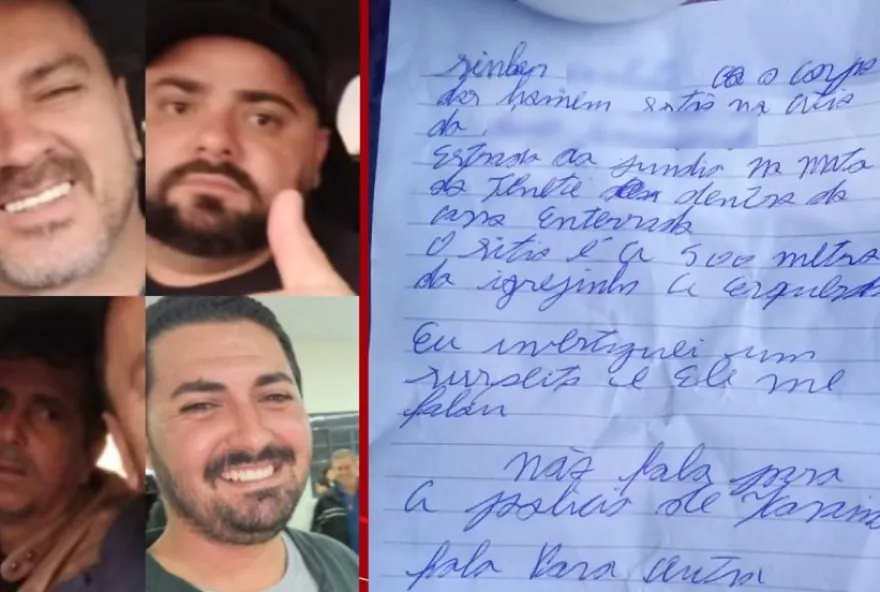 sinhor co o corpo
dos homem estão na cítio
da
Estrada da jundia na mata
do Tenete dentro do
carro Enterrado
O sitio é a 500 metro
da igrejinha a esquerda
Eu investiguei um
suspeito e Ele me
falou
não fala para
a policia de
fala Para outra